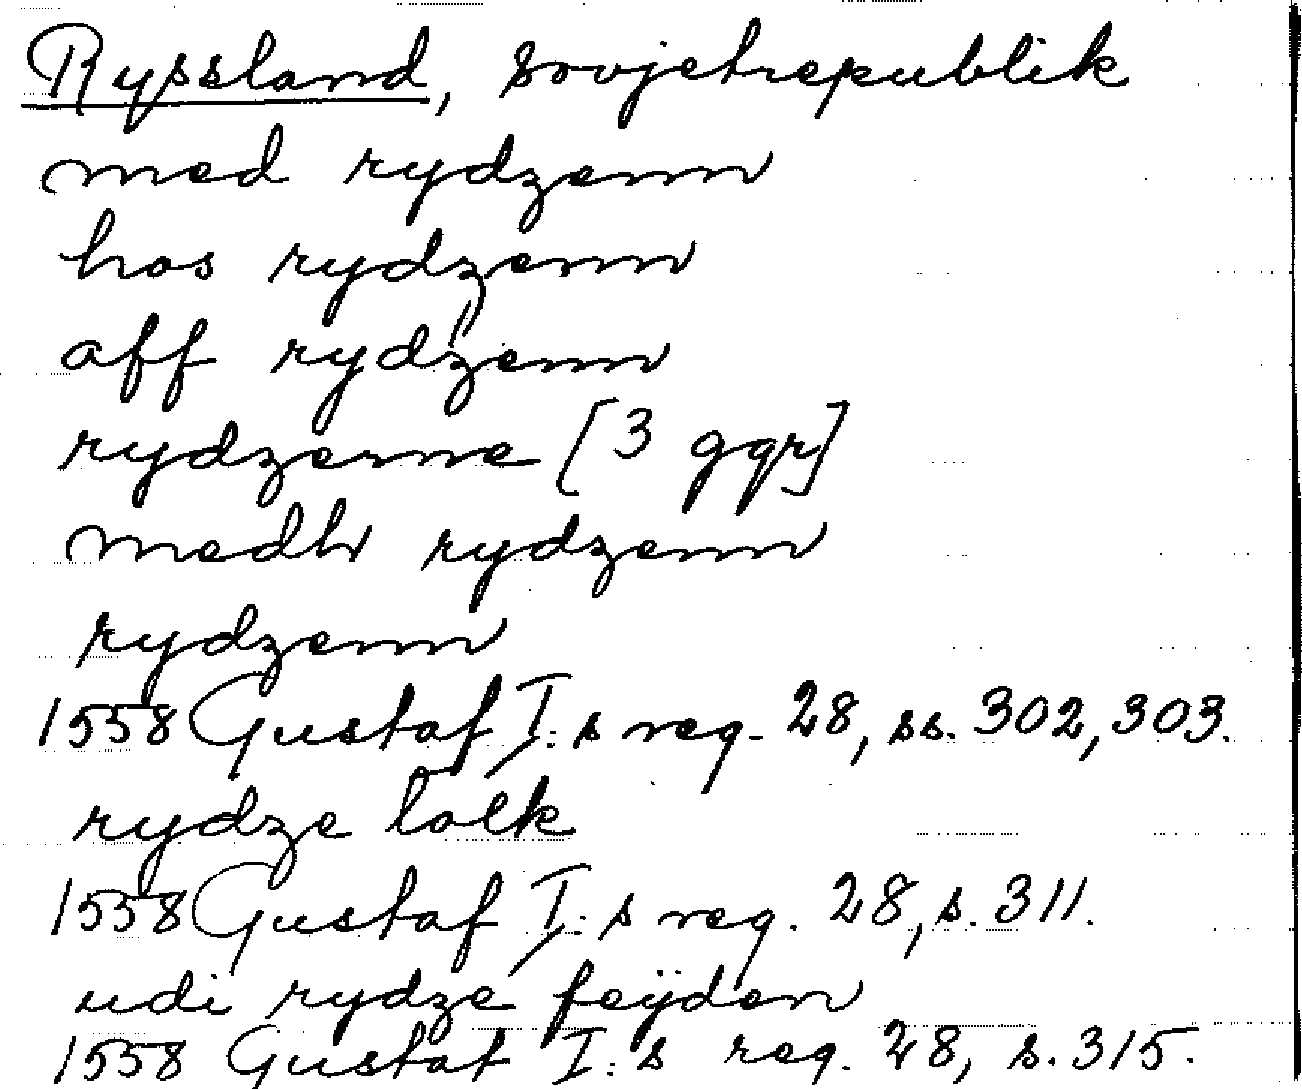 Ryssland, Sovjetrepublik
med rydzenn
hos rydzenn
aff rydzenn
rydzerne [3 ggr]
medh rydzenn
rydzenn
1558 Gustaf I:s reg. 28, ss. 302, 303.
rydze folk
1558 Gustaf I:s reg. 28, s. 311.
udi rydze feÿden
1558 Gustaf I:s reg. 28, s. 315.